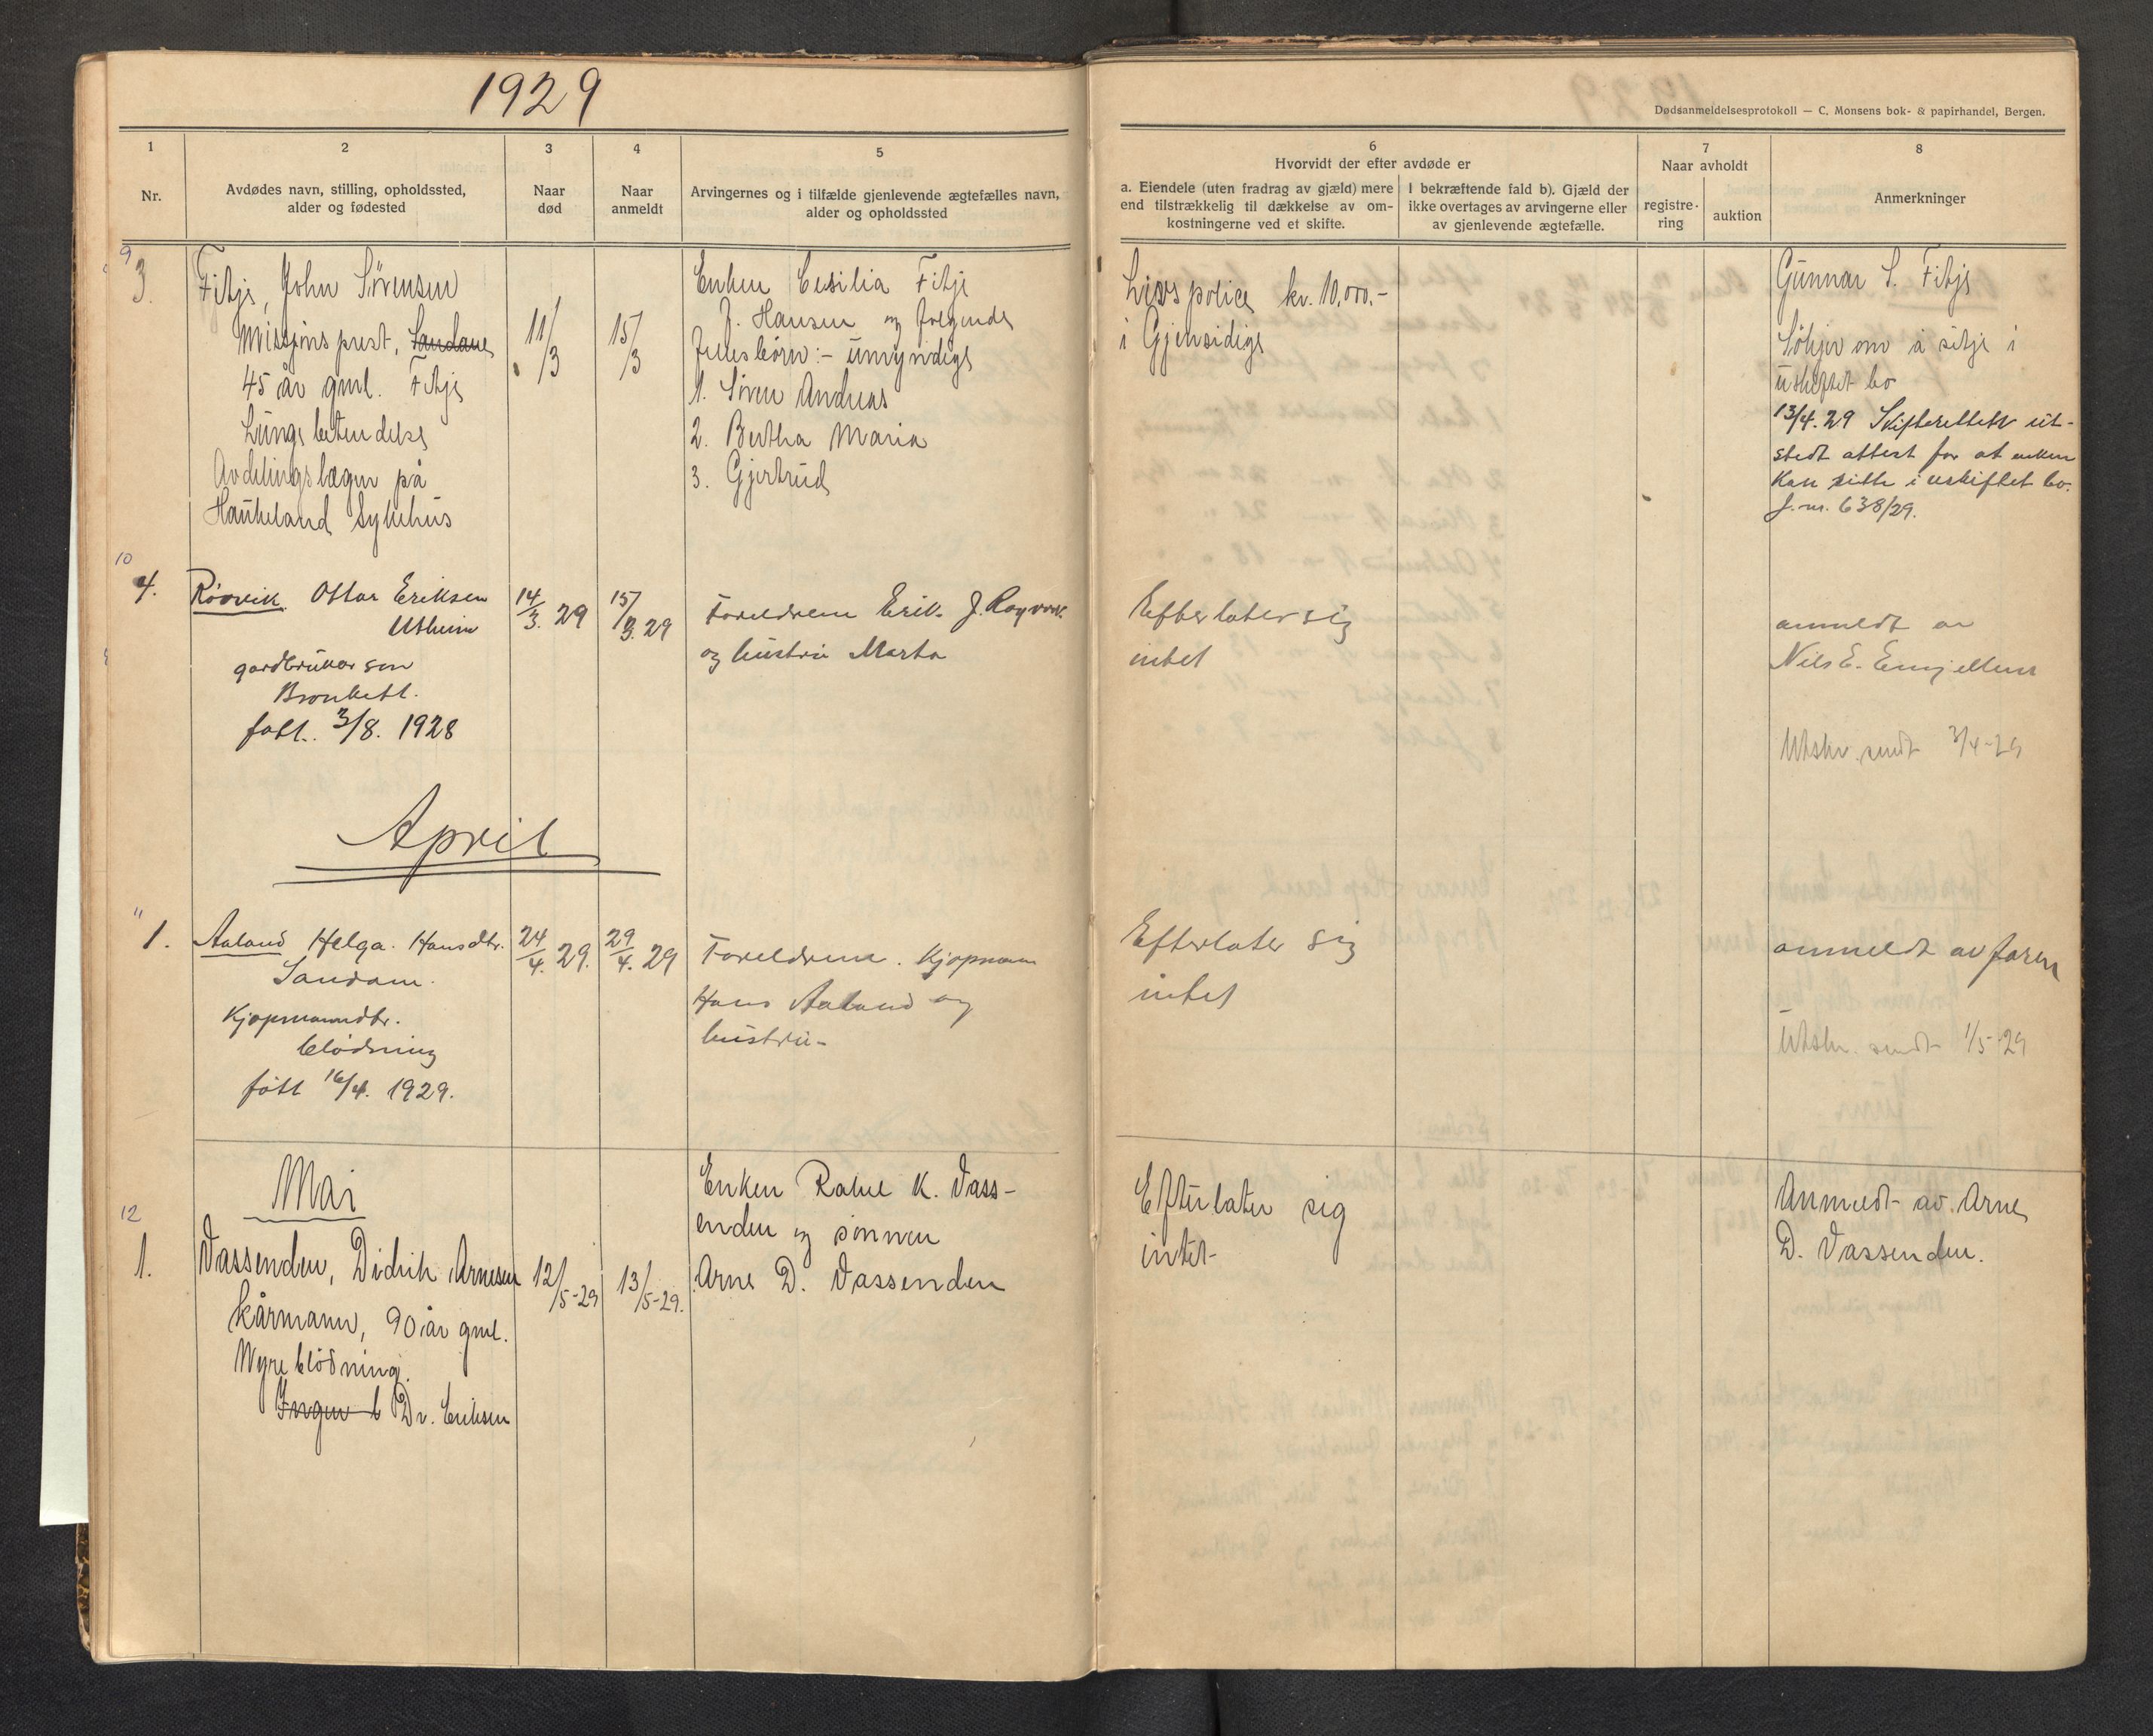 1929
Dødsanmeldelsesprotokoll — C. Monsens bok- & papirhandel, Bergen.
1
Nr.
2
Avdødes navn, stilling, opholdssted,
alder og fødested
3
Naar
død
4
Naar
anmeldt
5
Arvingernes og i tilfælde gjenlevende ægtefælles navn,
alder og opholdssted
6
Hvorvidt der efter avdøde er
a. Eiendele (uten fradrag av gjæld) mere
end tilstrækkelig til dækkelse av om-
kostningerne ved et skifte.
I bekræftende fald b). Gjæld der
ikke overtages av arvingerne eller
av gjenlevende ægtefælle.
7
Naar avholdt
registre-
ring
auktion
8
Anmerkninger
9
3.
Fitje, John Sørensen
Missjonsprest, Sandane
45 år gml. Fitje
Lungebetendelse
Avdelingslægen på
Haukeland Sykehus
11/3
15/3
Enken Cesilia Fitje
f. Hansen og følgende
fellesbørn:- umyndige
1. Søren Andreas
2. Bertha Maria
3. Gjertrud
Livspolice kr. 10,000.-
i Gjensidige
Gunnar S. Fitje
Søkjer om å sitje i
uskiftet bo
13/4.29 Skifteretten ut-
stedt attest for at enken
kan sitte i uskiftet bo.
J.nr. 638/29.
10
4.
Røyvik Ottar Eriksen
Utheim
gardbrukar son
Bronkitt.
fött. 3/8. 1928
14/3. 29
15/3. 29
Foreldrene Erik J. Røyvik
og hustru Marta
Efterlater sig
intet
anmeldt av
Nils E.
Utskr. sendt 3/4-29
April
11
1.
Aaland Helga. Hansdtr.
Sandane.
Kjøpmanndtr.
blødning
fött 16/4. 1929.
24/4. 29.
29/4. 29
Foreldrene. Kjøpmann
Hans Aaland og
hustru-
Efterlater sig
intet
anmeldt av faren
Utskr. sendt 1/5-29
Mai
12
1.
Vassenden, Didrik Arnesen
kårmann, 90 år gml.
Nyreblødning.
Ingen b Dr. Eriksen
12/5-29
13/5-29.
Enken Rakel K. Vass-
enden og sønnen
Arne D. Vassenden
Efterlater sig
intet
Anmeldt av Arne
D. Vassenden.